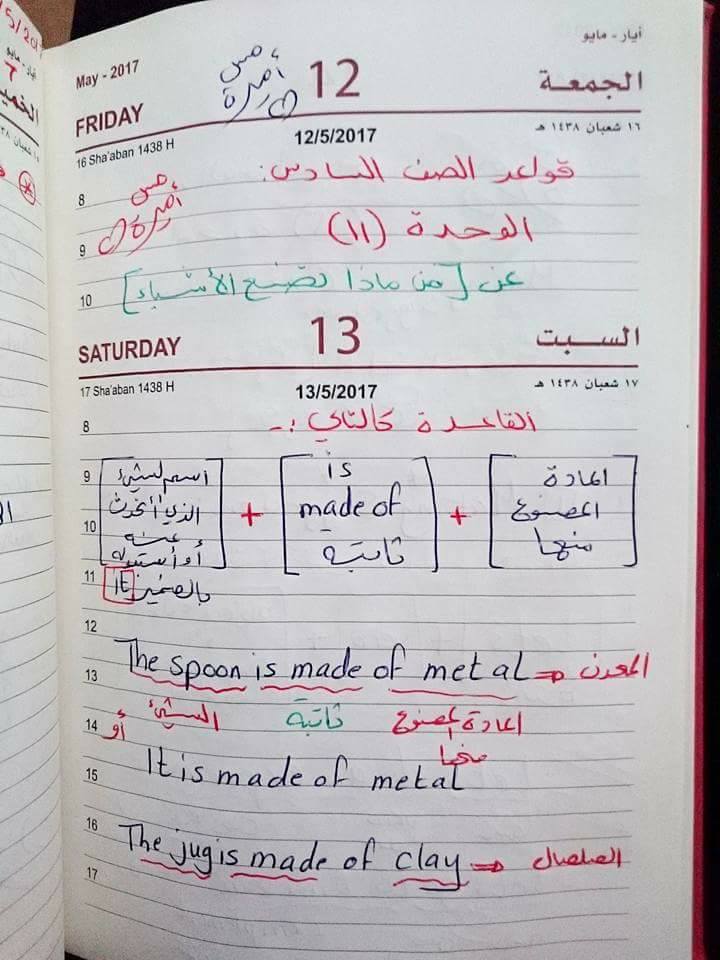 أيار - مايو
May - 2017
مس
أميرة
12
الجمعـة
FRIDAY
16 Sha'aban 1438 H
12/5/2017
١٦ شعبان ١٤٣٨ هـ
قواعد الصف السادس:
8
مس
أميرة
الوحدة (١١)
9
عن [من ماذا تصنع الأشياء]
10
SATURDAY
13
السـبت
17 Sha'aban 1438 H
13/5/2017
١٧ شعبان ١٤٣٨ هـ
8
القاعدة كالتالي :-
9
[أسم الشيء الذي أتحدث عنه أو أستبدله بالضمير it] + [is made of ثابتة] + [المادة المصنوع منها]
10
11
12
13
The spoon is made of metal ⇒ المعدن
الشيء ثابتة المادة المصنوع منها
14
أو
It is made of metal
15
16
The jug is made of clay ⇒ الصلصال
17